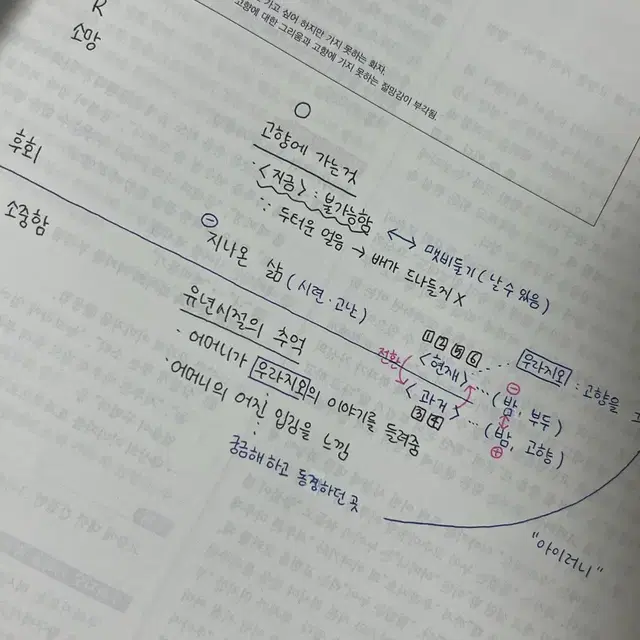 가고 싶어 하지만 가지 못하는 화자.
고향에 대한 그리움과 고향에 가지 못하는 절망감이 부각됨.
R
소망
O
고향에 가는것
후회
·<지금> : 불가능함 ↔ 멧비둘기 (날 수 있음)
∵ 두터운 얼음 → 배가 드나들지 X
소중함
⊖
지나온 삶 (시련·고난)
유년시절의 추억
1 2 5 6
전환 <현재> ··· (밤, 부두) ⊖
우라지오 : 고향을
· 어머니가 우라지오의 이야기를 들려줌
<과거> ··· (밤, 고향) ⊕
3 4
· 어머니의 어진 입김을 느낌
궁금해 하고 동경하던 곳
"아이러니"